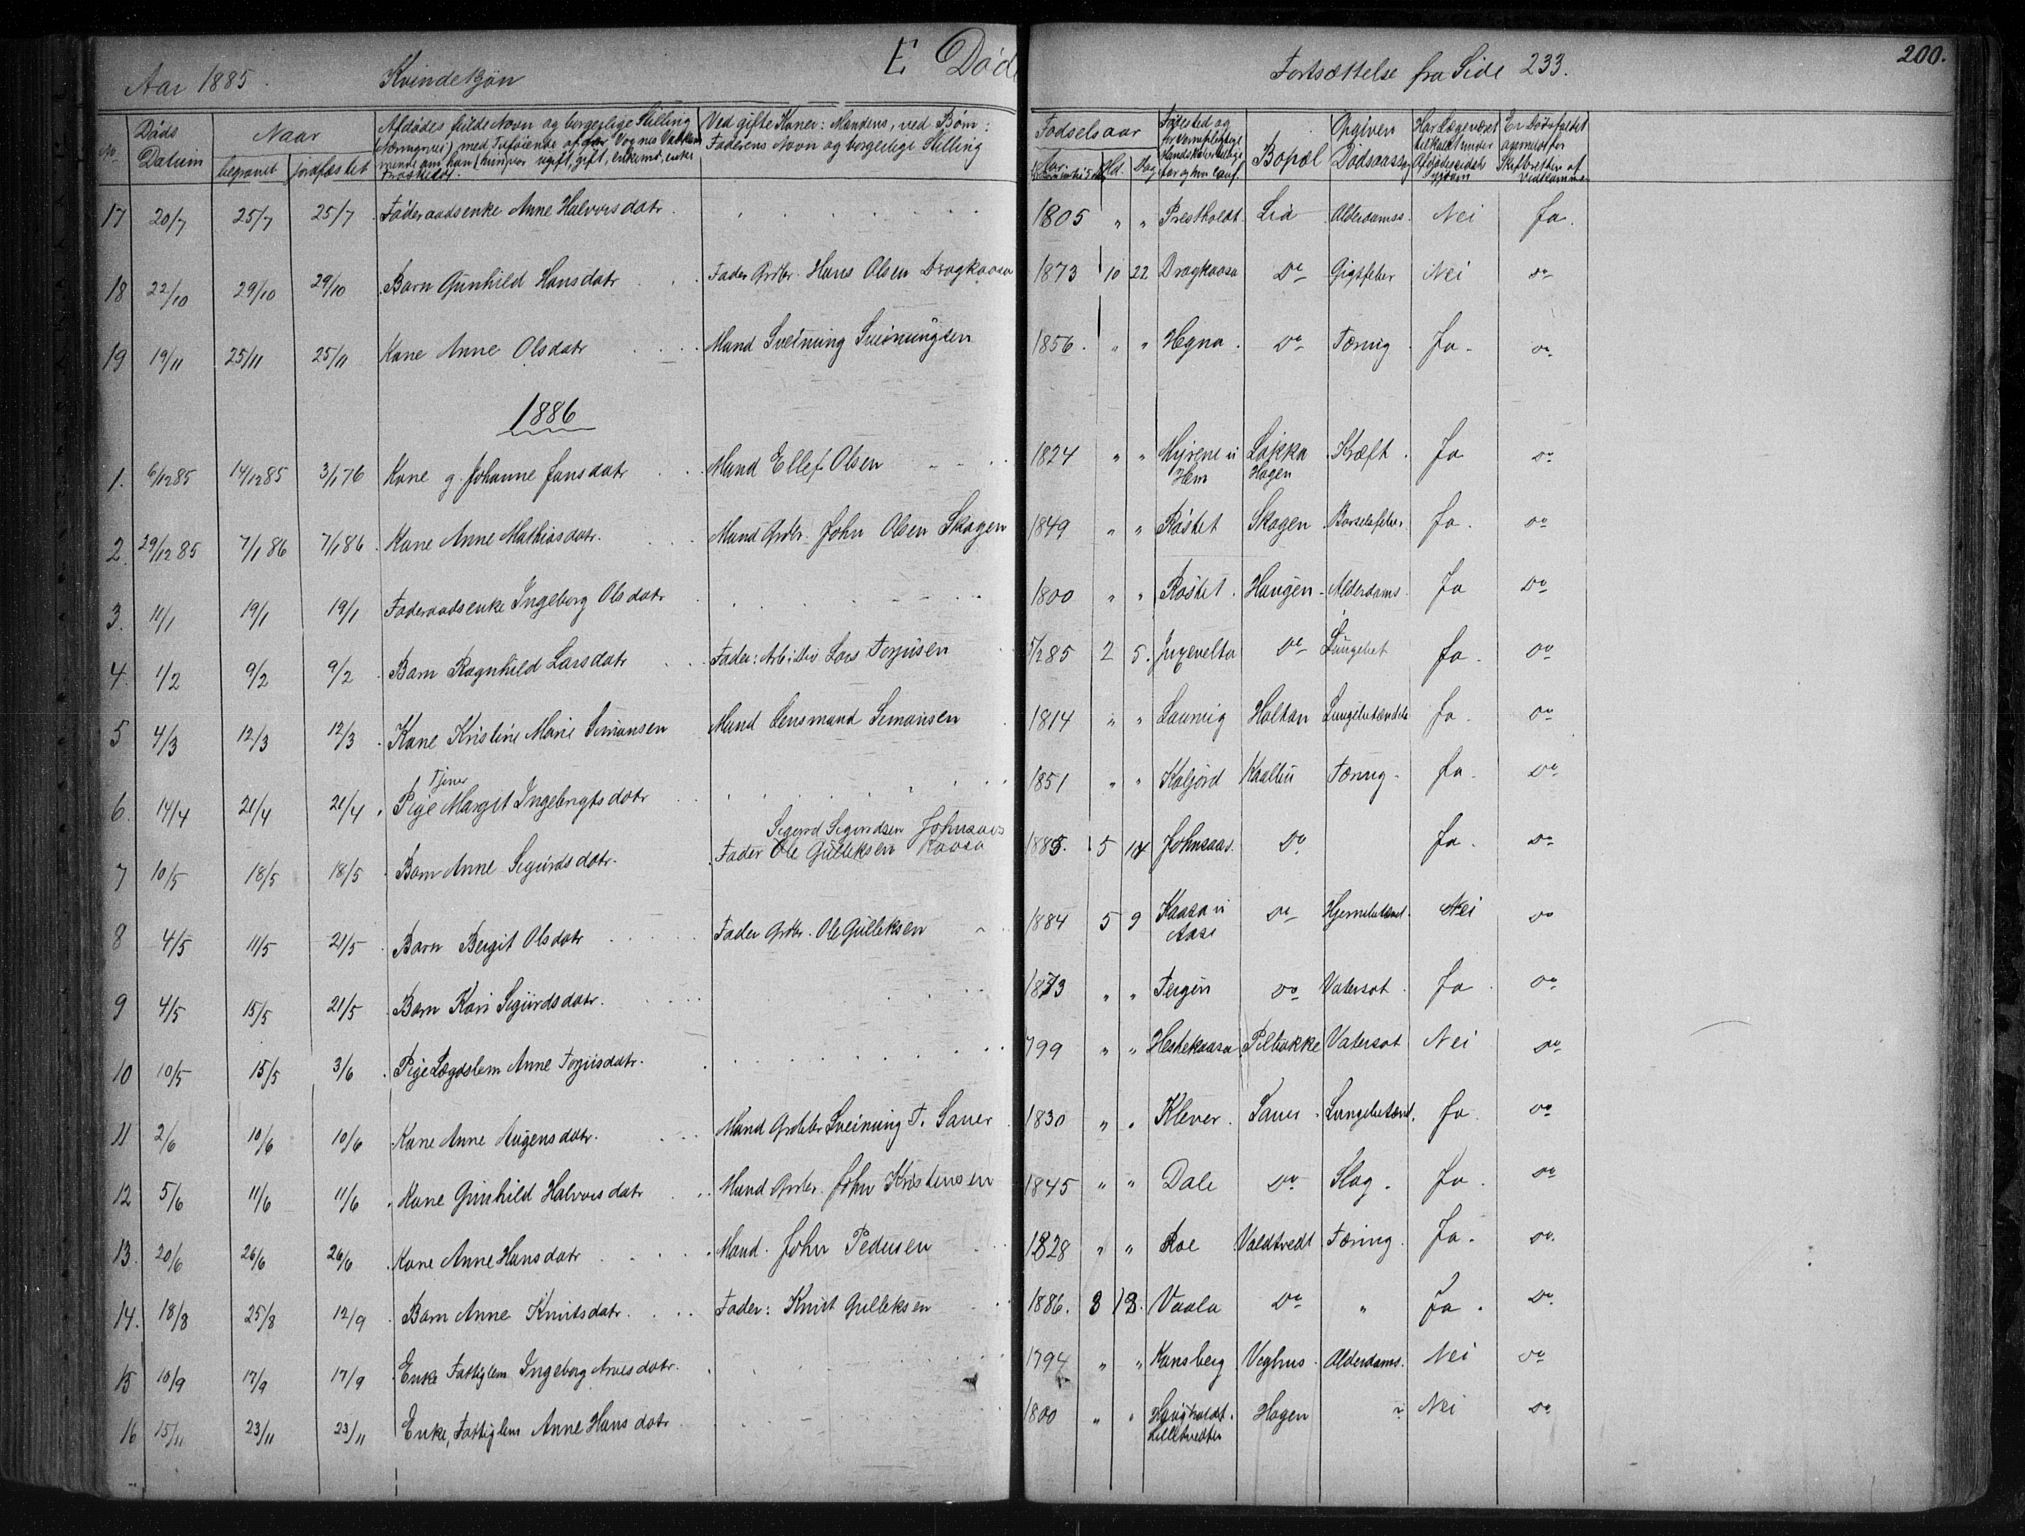 Aar 1885. Kvindekjøn E Døde Fortsættelse fra Side 233. 200.
No. Døds Datum Naar begravet jordfæstet
Afdødes fulde Navn og borgerlige Stilling
Ved gifte Koner: Mandens, ved Børn:
Faderens Navn og borgerlige Stilling
Fødselsaar Md. Dag Bopæl Opgiven Dødsaarsag
17 20/7 25/7 25/7 Føderaadsenke Anne Halvorsdatr. 1805 " " Prestholdt Lia Alderdomss. Nei Ja.
18 22/10 29/10 29/10 Barn Gunhild Hansdatr Fader Grdbr. Hans Olsen Dragkaasa 1873 10 22 Dragkaasa Do Gigtfeber Nei Do
19 19/11 25/11 25/11 Kone Anne Olsdatr Mand Sveinung Sveinungsen 1856. " " Hegna. Do Tæring Ja. Do
1886
1. 6/12 85 14/12 85 3/1 76 Kone g. Johanne Jansdatr Mand Ellef Olsen 1824 " " Myrene u Hem Løkka Hagen Kræft. Ja Do
2. 29/12 85 7/1 86 7/1 86 Kone Anne Mathiasdatr. Mand Grdbr. John Olsen Skogen 1849 " " Røstet Skogen Barselsfeber Ja. Do
3. 11/1 19/1 19/1 Føderaadsenke Ingeborg Olsdatr 1800 " " Røstet. Haugen Alderdoms Ja Do
4. 1/2 9/2 9/2 Barn Ragnhild Larsdatr Fader: Arbeider Lars Torjusen 85 2 5. Do Lungebet Ja. Do
5 4/3 12/3 12/3 Kone Kristine Marie Simonsen Mand Lensmand Simonsen 1814 " " Laurvig Holtan Lungebetændelse Ja. Do
6. 14/4 21/4 21/4 Tjener Pige Margit Ingebrigtsdatr 1851 " " Tæring. Ja. Do
7 10/5 18/5 18/5 Barn Anne Sigurdsdatr. Fader Ole Gulleksen Kaasa Sigurd Sigurdsen Johnsaas 1885. 5 14 Johnsaas Do Ja. Do
8 4/5 11/5 21/5 Barn Bergit Olsdatr Fader Grdbr. Ole Gulleksen 1884 5 9 Kaasa u Aase Do Hjernebetænd. Nei Do
9 4/5 15/5 21/5 Barn Kari Sigurdsdatr. 1873 " " Do Vatersot. Ja. Do
10 10/5 15/5 3/6 Pige Lægdslem Anne Torjusdatr. 799 " " Hestekaasa Vatersot Nei Do
11 2/6 10/6 10/6 Kone Anne Augensdatr. Mand Grdbr Sveinung T. Sauer 1830 " " Klever. Sauer. Lungebetænd. Ja. Do
12 5/6 11/6 11/6 Kone Gunhild Halvorsdatr Mand Grdbr. John Kristensen 1845 " " Dale Do Slag. Ja. Do
13. 20/6 26/6 26/6 Kone Anne Hansdatr Mand. John Pedersen 1828 " " Roe Valdtvedt Tæring. Ja. Do
14. 18/8 25/8 12/9 Barn Anne Knutsdatr. Fader: Knut Gulleksen 1886. 3 13. Vaala Do " Ja. Do.
15 10/9 17/9 17/9 Enke Fattiglem Ingeborg Arnesdatr. 1794 " " Konsberg Veghus. Alderdoms. Nei Do
16 15/11 23/11 23/11 Enke, Fattiglem Anne Hansdatr 1800 " " Haugholdt. Lilletvedten Hagen ? Nei Do